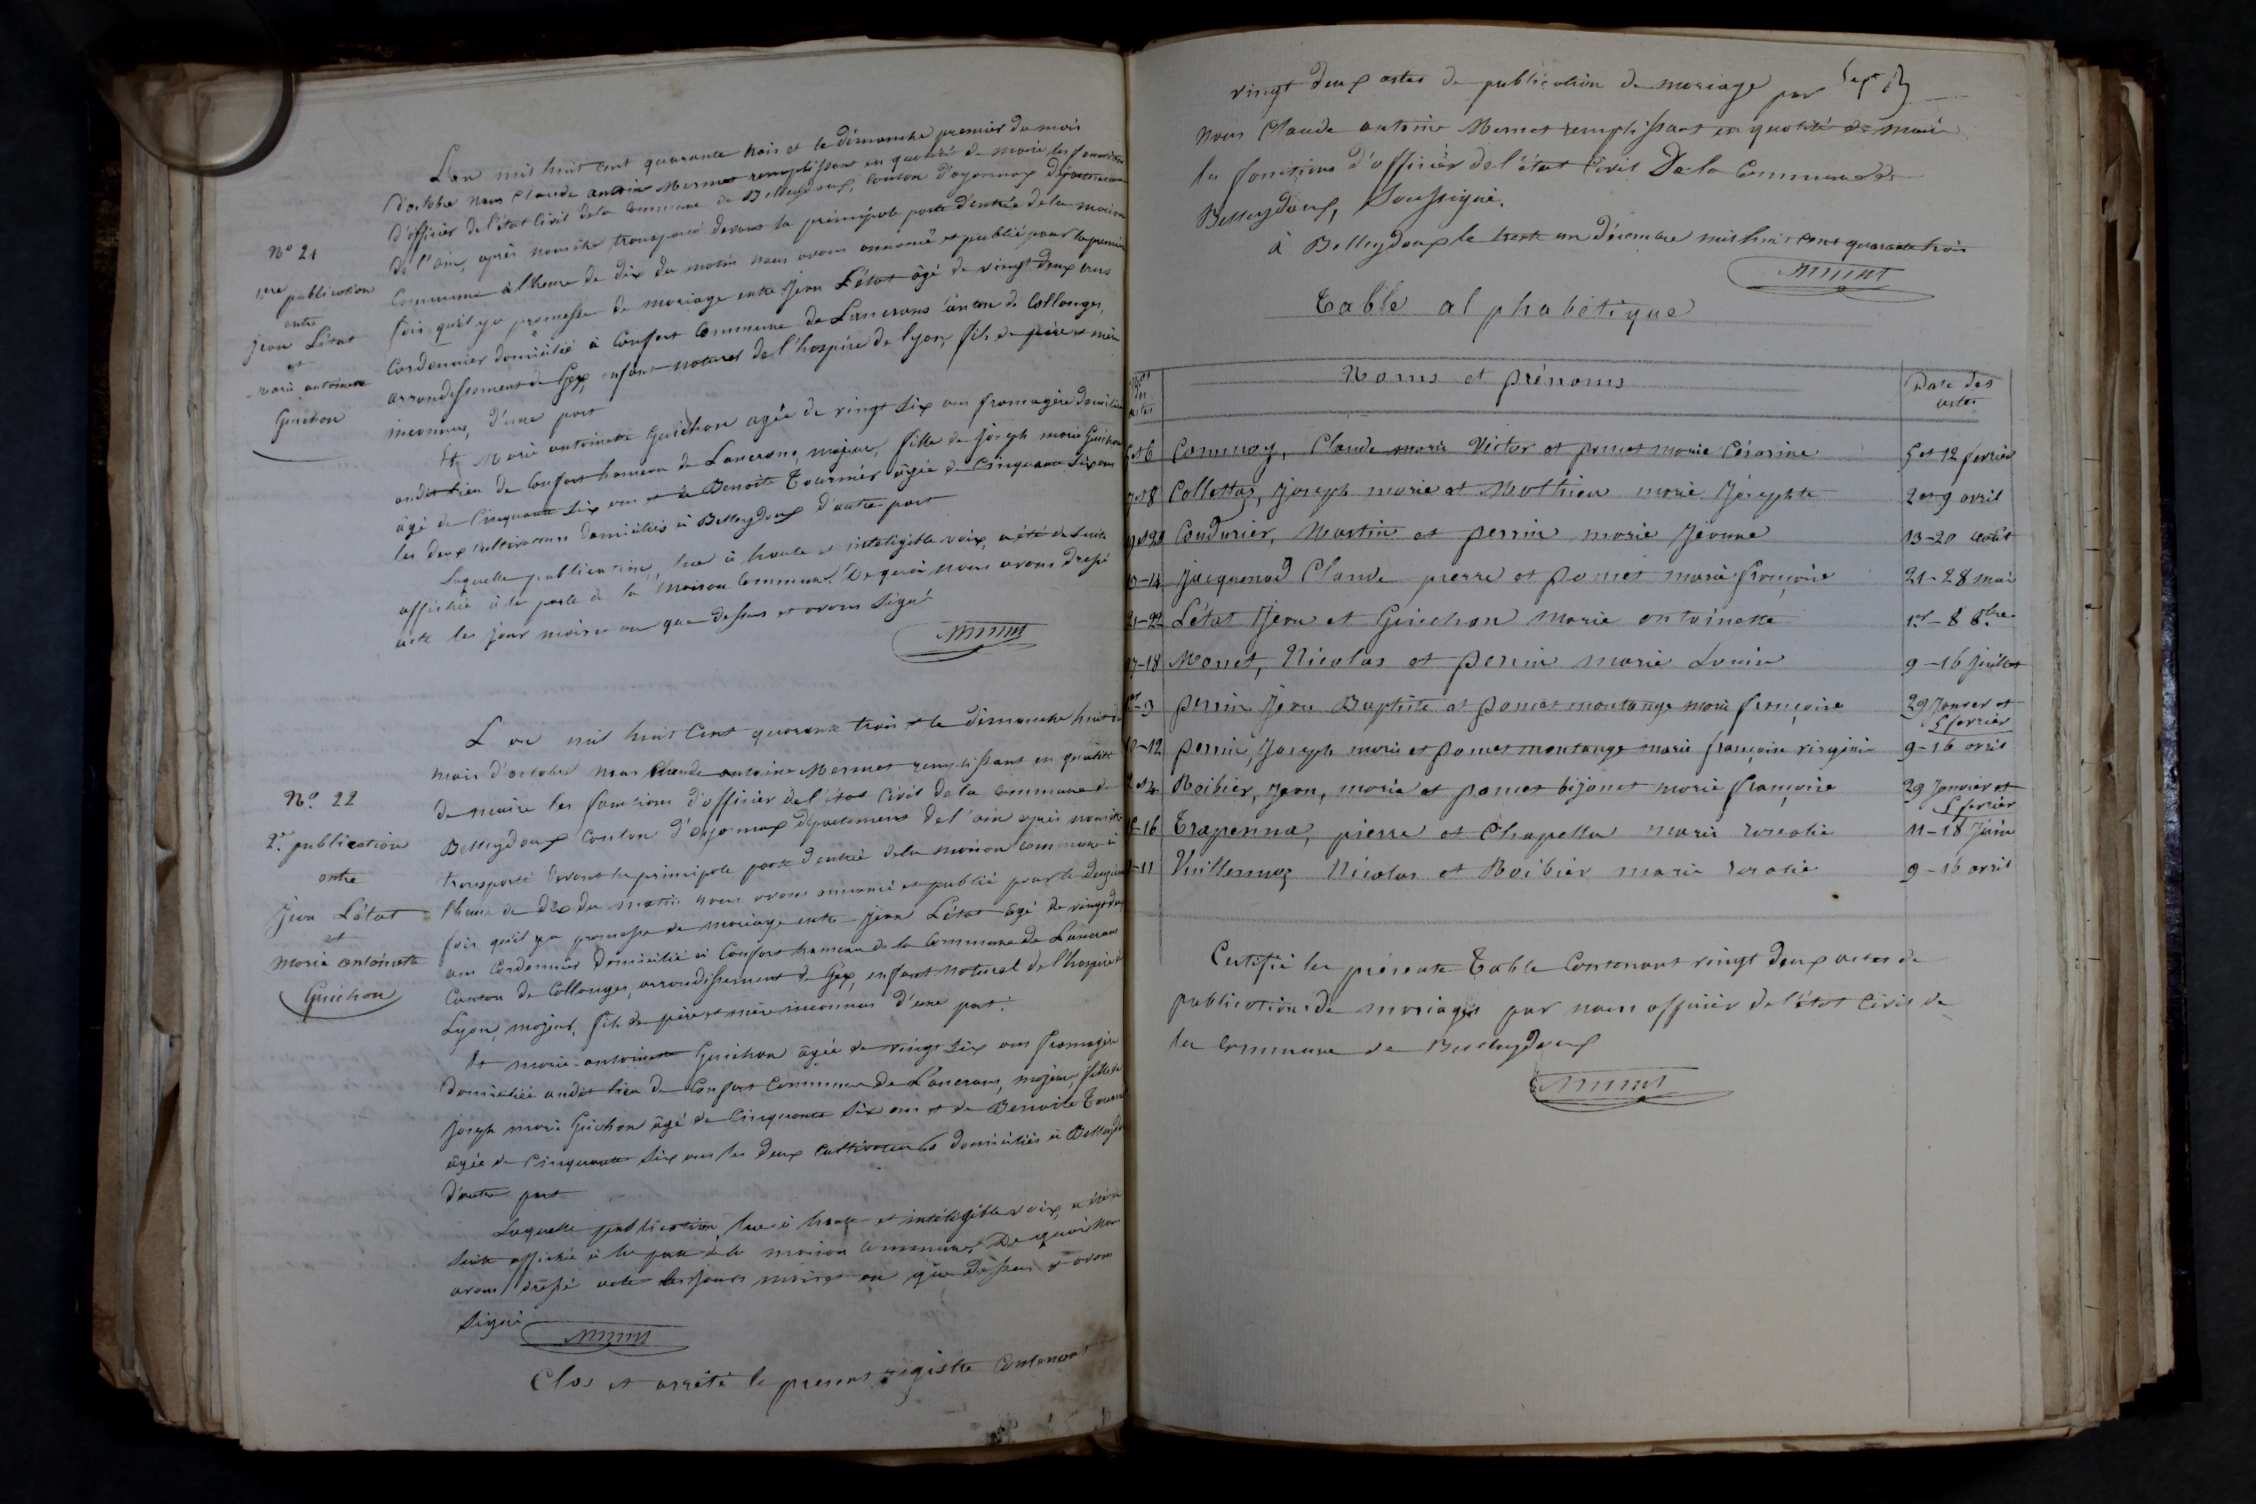 L'an mil huit cent quarante trois et le dimanche premier du mois
d'octobre nous Claude antoine Mermet remplissant en qualité de maire les fonctions
d'officier de l'état Civil de la Commune de Belleydoux, Canton d'oyonnax département
de l'ain, après nous être transporté devant la principale porte d'entrée de la maison
Commune à l'heure de dix du matin nous avons annoncé et publié pour la première
fois qu'il y a promesse de mariage entre Jean L'état âgé de vingt deux ans
Cordonnier domicilié à Confort Commune de Lancrans canton de Collonges,
arrondissement de Gex, enfant naturel de l'hospice de lyon, fils de père et mère
inconnus, d'une part
Et Marie antoinette Guichon agée de vingt six ans fromagère domiciliée
audit lieu de Confort hameau de Lancrans, majeure, fille de Joseph marie Guichon
âgé de Cinquante six ans et de Benoite Tournier âgée de Cinquante six ans
les deux cultivateurs domiciliés à Belleydoux d'autre part
Laquelle publication, lue à haute et inteligible voix, a été de suite
affichée à la porte de la Maison Commune. De quoi nous avons dressé
acte les jour mois et an que dessus et avons signé
Mermet
N° 21
1ere publication
entre
Jean L'état
et
marie antoinette
Guichon
L'an mil huit Cent quarante trois et le dimanche huit du
mois d'octobre nous Claude antoine Mermet remplissant en qualité
de maire les fonctions d'officier de l'état Civil de la commune de
Belleydoux Canton d'oyonnax département de l'ain après nous être
transporté devant la principale porte d'entrée de la maison commune à
l'heure de dix du matin nous avons annoncé et publié pour la deuxième
fois qu'il y a promesse de mariage entre Jean L'état âgé de vingt deux
ans Cordonnier domicilié à Confort hameau de la Commune de Lancrans
Canton de Collonges, arrondissement de Gex, enfant naturel de l'hospice de
Lyon, majeur, fils de père et mère inconnus d'une part.
Et marie antoinette Guichon âgée de vingt six ans fromagère
domiciliée audit lieu de Confort Commune de Lancrans, majeure, fille de
Joseph marie Guichon âgé de Cinquante six ans et de Benoite Tournier
âgée de Cinquante six ans les deux cultivateurs domiciliés à Belleydoux
d'autre part
Laquelle publication, lue à haute et intéligible voix, a été de
suite affichée à la porte de la maison commune. De quoi nous
avons dressé acte les jours mois et an que dessus et avons
signé
Mermet
N°. 22
2e. publication
entre
Jean L'état
et
Marie antoinette
Guichon
Clos et arrêté le présent régistre Contenant
vingt deux actes de publication de mariage par
nous Claude antoine Mermet remplissant en qualité de maire
les fonctions d'officier de l'état Civil De la Commune de
Belleydoux, Soussigné.
à Belleydoux le trente un décembre mil huit cent quarante trois
Mermet
Table alphabétique
Nos des actes
Noms et prénoms
Date des actes
5 et 6 Comuoy, Claude marie Victor et poncet marie Césarine 5 et 12 février
7 et 8 Collettaz, Joseph marie et Mathieu marie Josephte 2 et 9 avril
19 et 20 Coudurier, Martin et perrin marie Jeanne 13-20 août
13-14 Jacquenod Claude pierre et poncet marie françoise 21-28 mai
21-22 L'état Jean et Guichon Marie antoinette 1er-8 8bre
17-18 Monet, Nicolas et perrin marie Louise 9-16 Juillet
1er-3 perrin Jean Baptiste et poncet montange marie françoise 29 Janvier et 5 février
10-12 perrin, Joseph marie et poncet montange marie françoise virginie 9-16 avril
2 et 4 Roibier, Jean, marie et poncet bijonet marie françoise 29 Janvier et 5 février
15-16 Trapenna, pierre et Chapella marie rosalie 11-18 Juin
9-11 Vuillermoz Nicolas et Roibier marie rosalie 9-16 avril
Certifié la présente Table Contenant vingt deux actes de
publications de mariages par nous officier de l'état Civil de
la commune de Belleydoux
Mermet